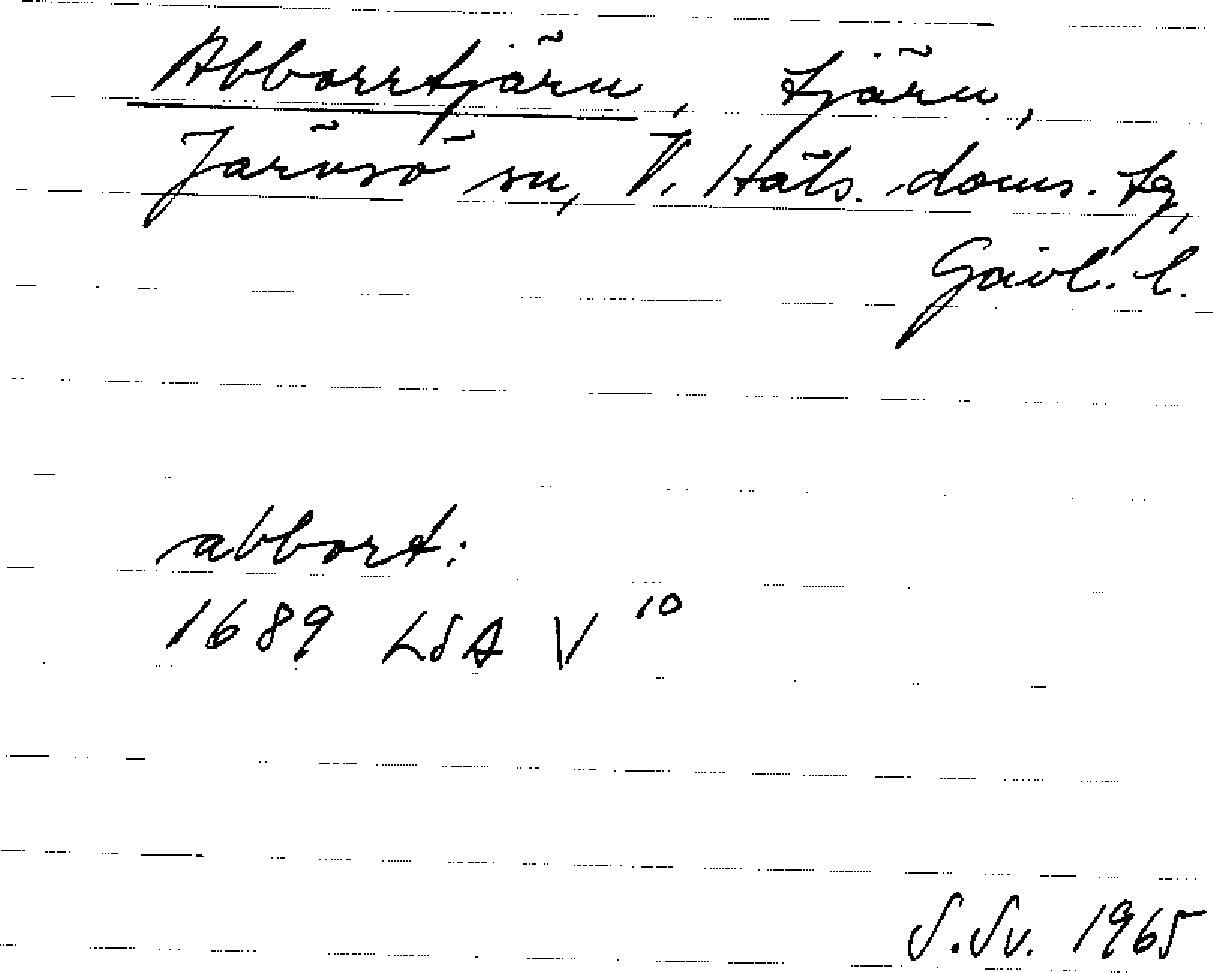 Abborrtjärn, tjärn,
Järvsö sn, V. Häls. doms. tg,
Gävl. l.
abbort:
1689 LSA V 10
S. Sv. 1965